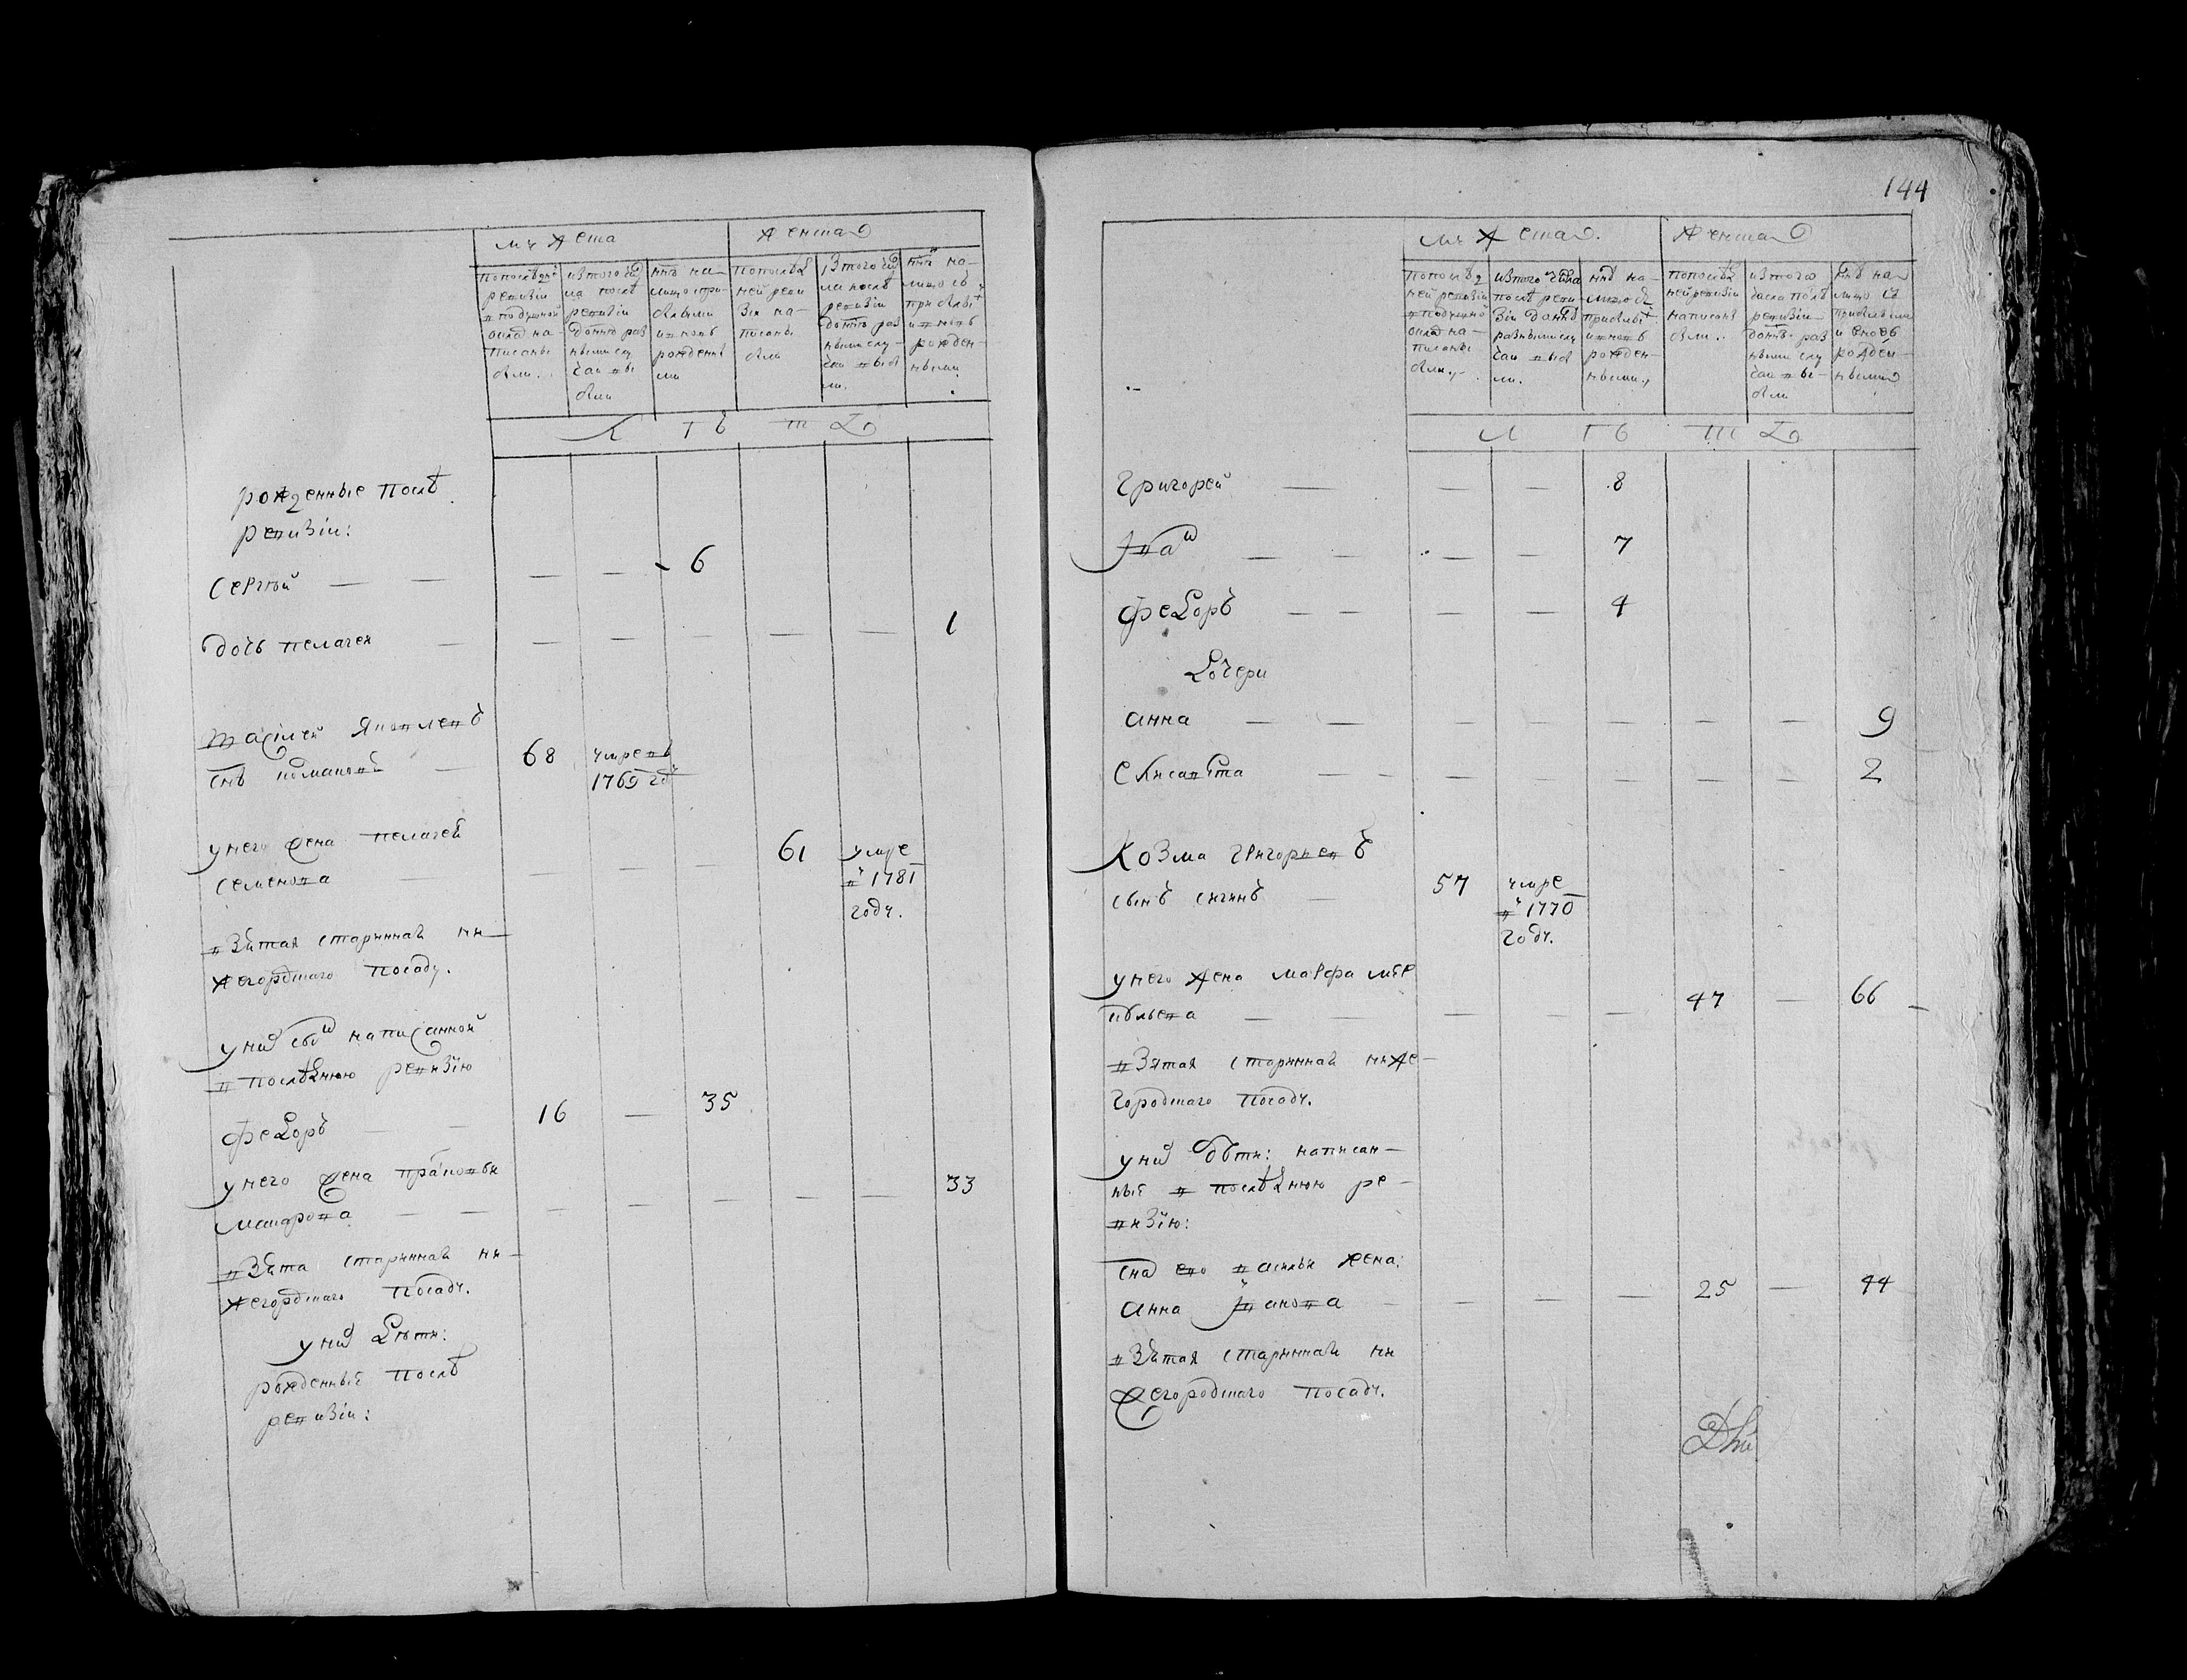 144
мужеска
женска
попослѣдне
ревизіи
в подушной
оклад на
писаны
были
изтого чис
ла послѣ
ревизіи
домто раз
ными слу
чаи вы
были
ннѣ на
лицо при
былыми
и вновь
рожденны
ми
попослѣд
ней реви
зіи на
писаны
были
изтого чис
ла послѣ
ревизіи
домто раз
ными слу
чаи выб
ли
ннѣ на
лицо съ
прибылы
и вновь
рожден
ными
Л Ѣ Т Ъ
рожденные послѣ
ревизіи:
Сергѣй — — — — 6
дочь пелагея — — — — — — 1
васілей яковлевъ
снъ
68
умре въ
1769 гд
унего жена пелагей
семенова — — — — 61
умре
в 1781
году.
взятая старинная ни
жегородцкаго посаду.
уних сынъ написанной
в послѣднюю ревизію
федоръ — — 16 — 35
унего жена прасковьи
— — — — — — — 33
взята старинная ни
жегородцкаго посаду.
уних дѣти:
рожденные послѣ
ревизіи:
мужеска
женска
попослѣд
ней ревизіи
в подушно
оклад на
писаны
были
изтого числа
послѣ реви
зіи домто
разными слу
чаи выб
ли
ннѣ на
лицо съ
прибылы
и вновь
рожден
ными
попослѣд
ней ревизіи
написаны
были
изтого
числа послѣ
ревизіи
домто раз
ными слу
чаи вы
были
ннѣ на
лицо съ
прибылыми
и вновь
рожден
ными
Л Ѣ Т Ъ
Григорей — — — 8
Иван — — — — 7
федоръ — — — — 4
дочери
анна — — — — — — — 9
елисавѣта — — — — — — — 2
Козма григорьевъ
сынъ — 57
умре
в 1770
году.
унего жена марфа
— — — — — 47 — 66
взятая старинная ниже
городцкаго посаду.
уних дѣти: написан
ные в послѣднюю ре
визію:
сна ево василья жена:
анна иванова — — — — 25 — 44
взятая старинная ни
жегородцкаго посаду.